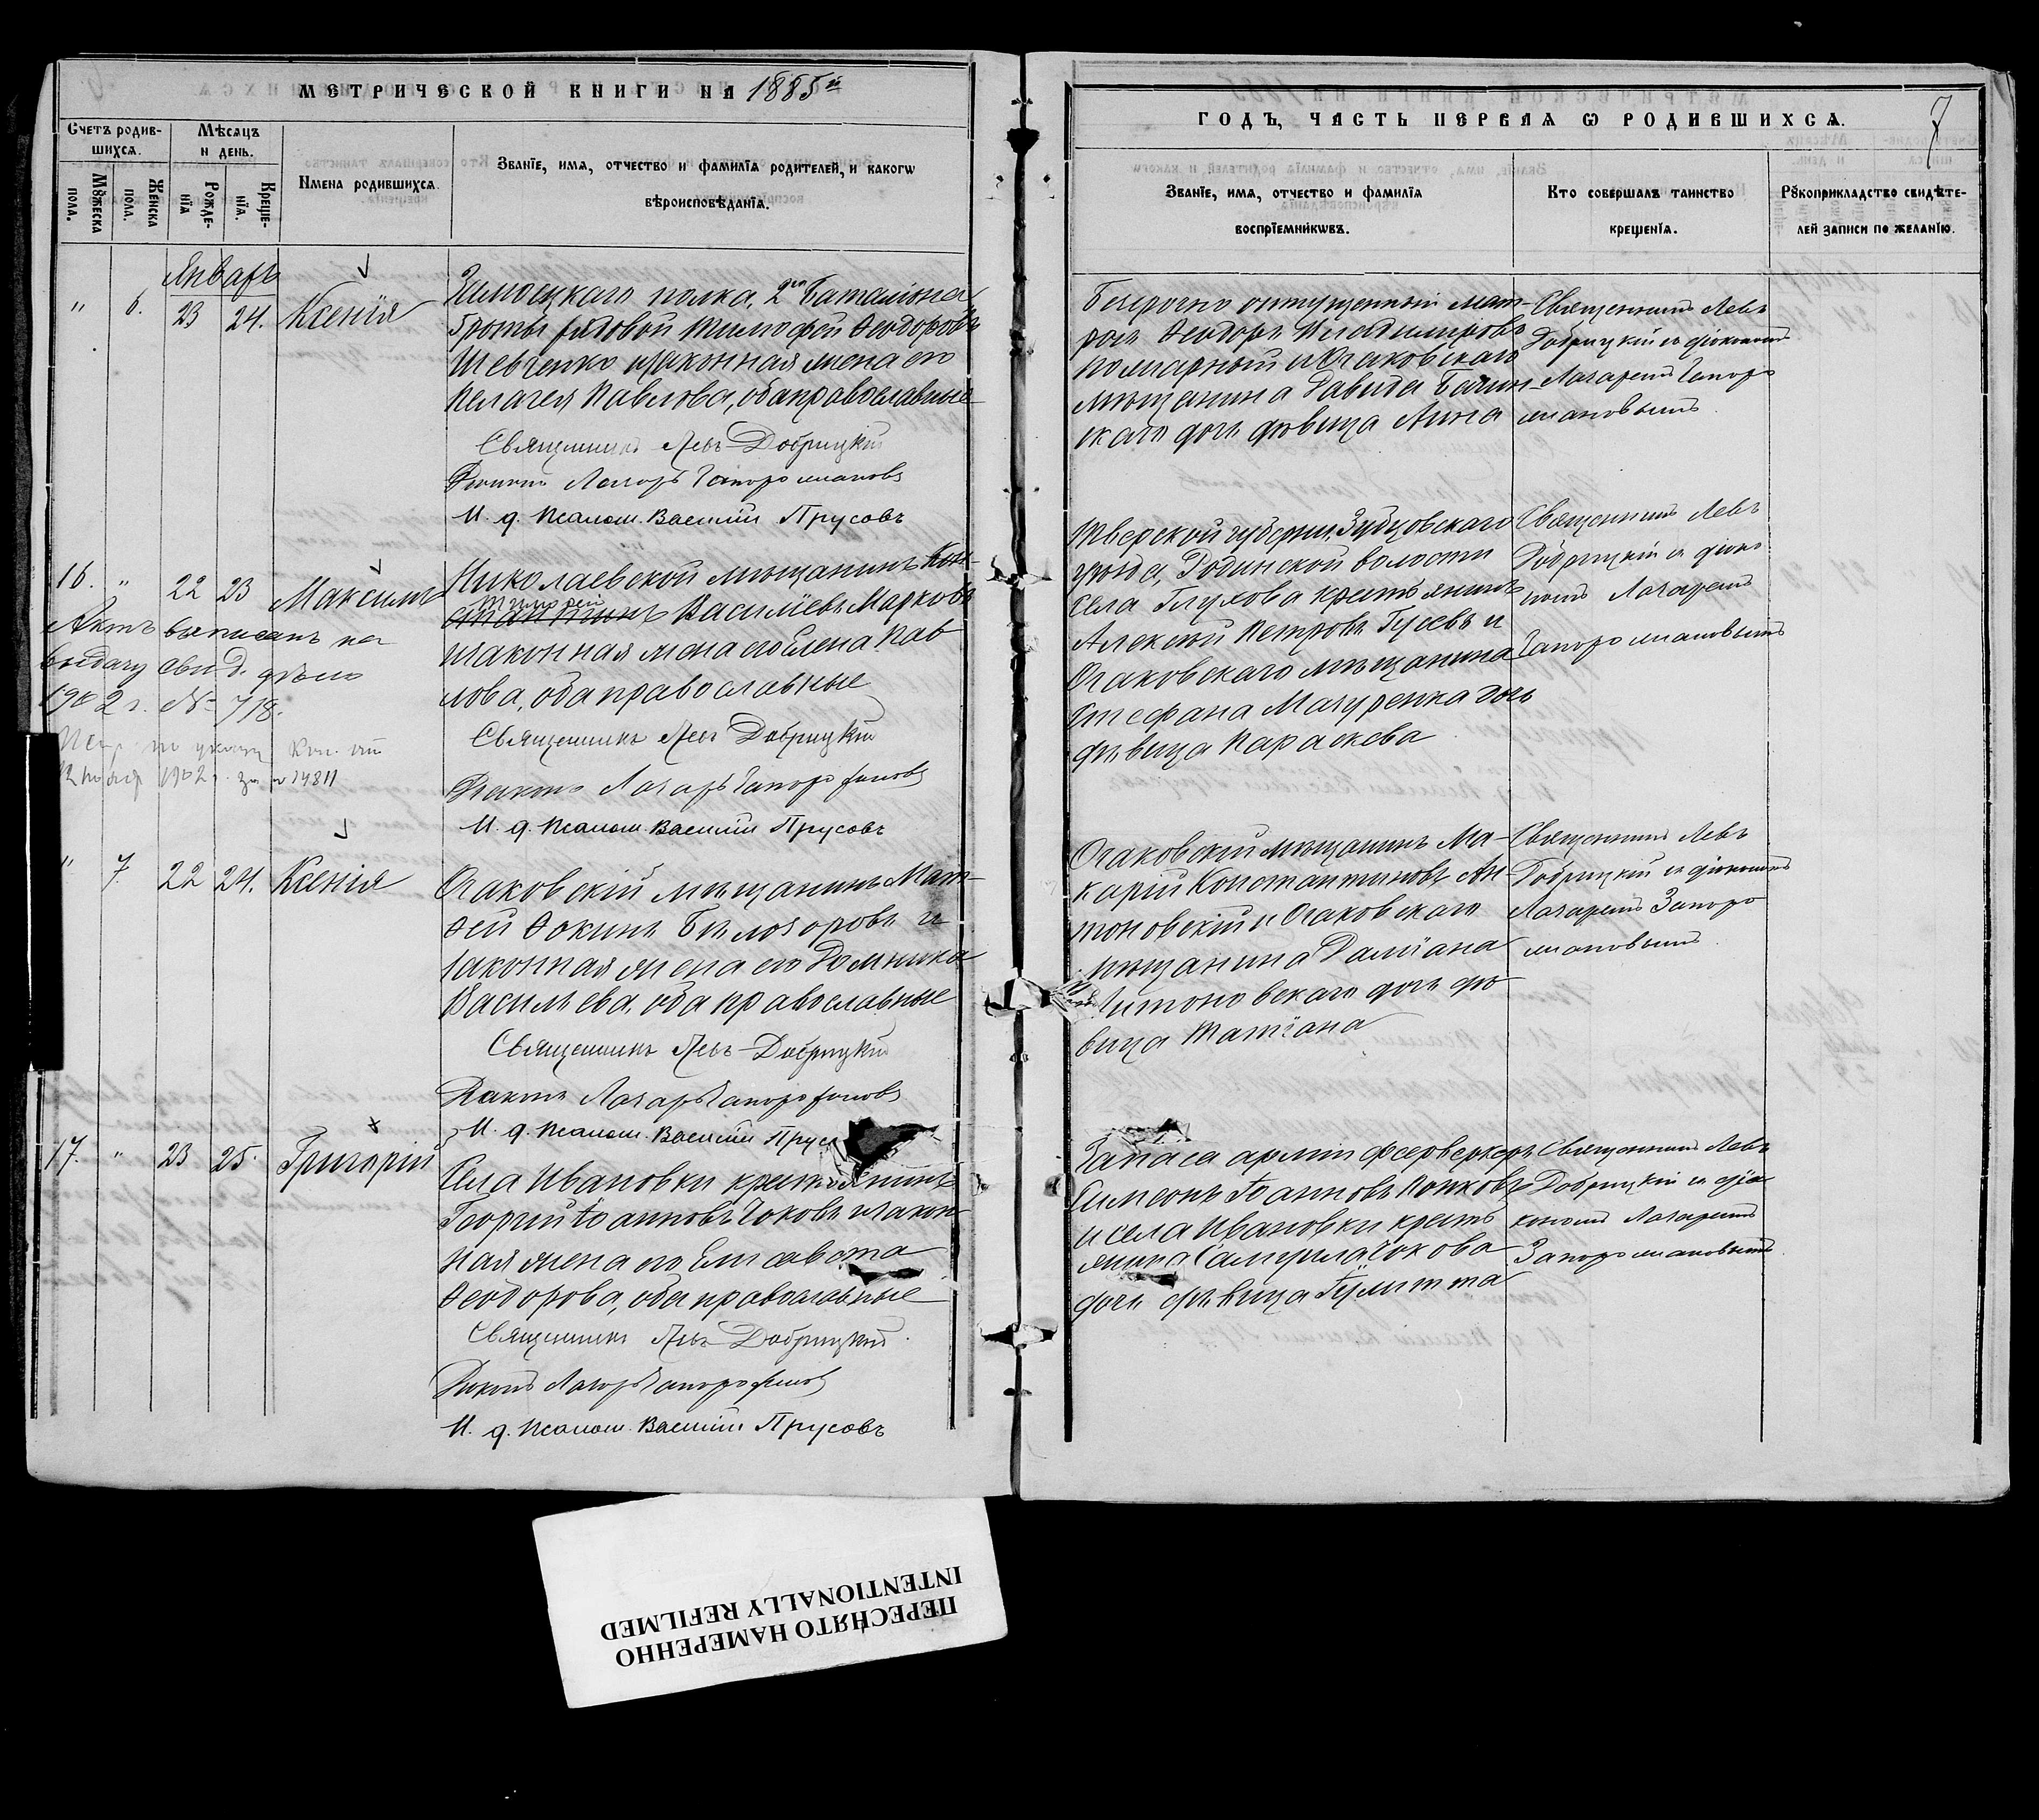 МЕТРИЧЕСКОЙ КНИГИ НА 1885й
Счетъ родив-
шихсѧ.
Мѣсѧцъ
и день.
Мꙋжеска
пола.
Женска
пола.
Рожде-
нїѧ
Креще-
нїѧ.
Имена родившихсѧ.
Званїе, имѧ, отчество и фамилїѧ родителей, и какогѡ
вѣроисповѣданїѧ.
Январь
" 6. 23 24. Ксенія
полка, 2го баталіона
5 роты рядовой Тимофей Ѳеодоровъ
Шевченко и законная жена его
Пелагея Павлова, оба православные
Священникъ Левъ Добрицкій
Діаконъ Лазарь
И. д. псалом. Василій Прусовъ
16. " 22 23 Максимъ
Николаевской мѣщанинъ Кон-
Тимофей
стантинъ Василіевъ Марковъ
и законная жена его Елена Пав
лова, оба православные
Актъ выписанъ на
выдачу свид. дѣло
1902 г. № 718.
1902 г. за № 14811
Священникъ Левъ Добрицкій
Діаконъ Лазарь
И. д. псалом. Василій Прусовъ
" 7. 22 24. Ксенія
Очаковскій мѣщанинъ Мат-
ѳей Ѳокинъ Бѣлозоровъ и
законная жена его Домника
Васильева, оба православные
Священникъ Левъ Добрицкій
Діаконъ Лазарь
И. д. псалом. Василій Прус
17. " 23 25. Григорій
Села Ивановки крестьянинъ
Георгій Іоанновъ Чоковъ и закон-
ная жена его Елисавета
Ѳеодорова, оба православные
Священникъ Левъ Добрицкій.
Діаконъ Лазарь
И. д. псалом. Василій Прусовъ
ГОДЪ, ЧАСТЬ ПЕРВАѦ Ѡ РОДИВШИХСѦ.
7
Званїе, имѧ, отчество и фамилїѧ
воспрїемникѡвъ.
Кто совершалъ таинство
крещенїѧ.
Рꙋкоприкладство свидѣте-
лей записи по желанїю.
Безсрочно отпущенный мат-
росъ Ѳеодоръ
и Очаковскаго
мѣщанина Давида
скаго дочь дѣвица Анна
Священникъ Левъ
Добрицкій съ діакономъ
Лазаремъ Запоро
жановымъ.
Тверской губерніи, Зубцовскаго
уѣзда, Родинской волости
села Глухова крестьянинъ
Алексѣй Петровъ Гусевъ и
Очаковскаго мѣщанина
Стефана Мазуренка дочь
дѣвица Параскева
Священникъ Левъ
Добрицкій съ діако
номъ Лазаремъ
Запорожановымъ
Очаковскій мѣщанинъ Ма-
карій Константиновъ Ан
тоновскій и Очаковскаго
мѣщанина Даміана
Антоновскаго дочь дѣ
вица Татіана
Священникъ Левъ
Добрицкій съ діакономъ
Лазаремъ Запоро
жановымъ.
Запаса арміи феерверкеръ
Симеонъ Іоанновъ Попковъ
и села Ивановки кресть
янина Самуила Чокова
дочь дѣвица Іулитта
Священникъ Левъ
Добрицкій съ діа
кономъ Лазаремъ
Запорожановымъ.
ПЕРЕСНЯТО НАМЕРЕННО
INTENTIONALLY REFILMED